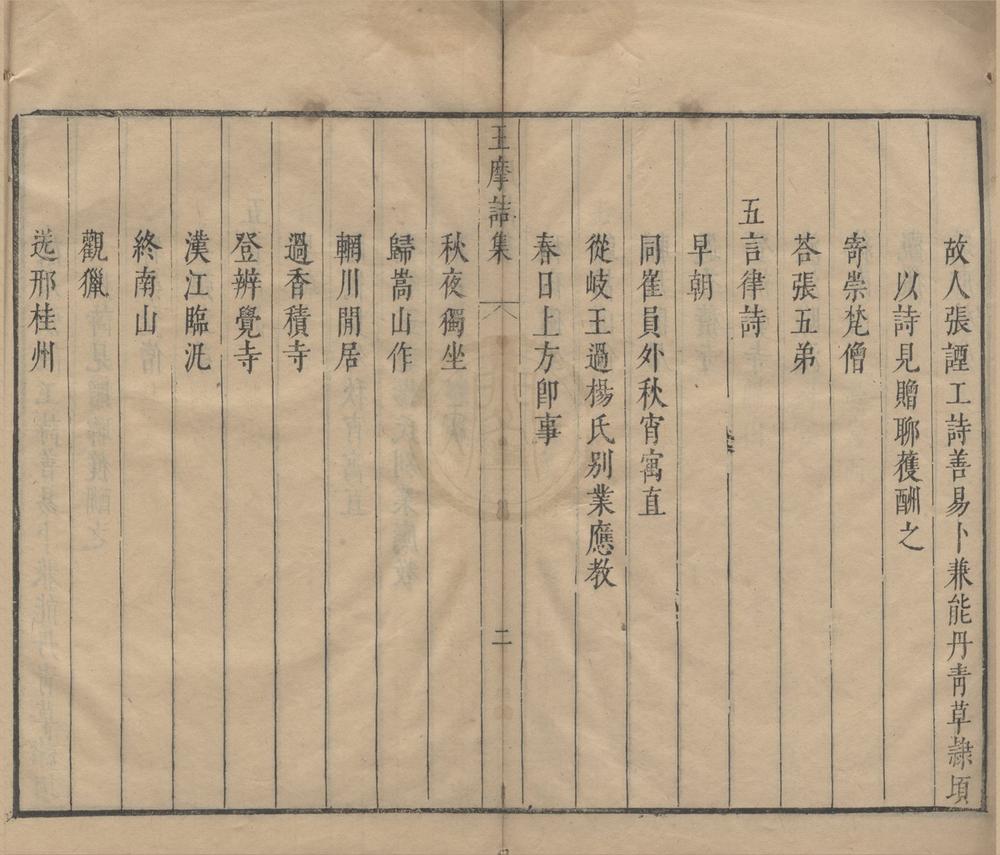 故人張諲工詩善易卜兼能丹青草隸頃
以詩見贈聊獲酬之
寄崇梵僧
荅張五弟
五言律詩
早朝
同崔員外秋宵寓直
從岐王過楊氏别業應教
春日上方卽事
王摩詰集
二
秋夜獨坐
歸嵩山作
輞川閒居
過香積寺
登辨覺寺
漢江臨汎
終南山
觀獵
送邢桂州